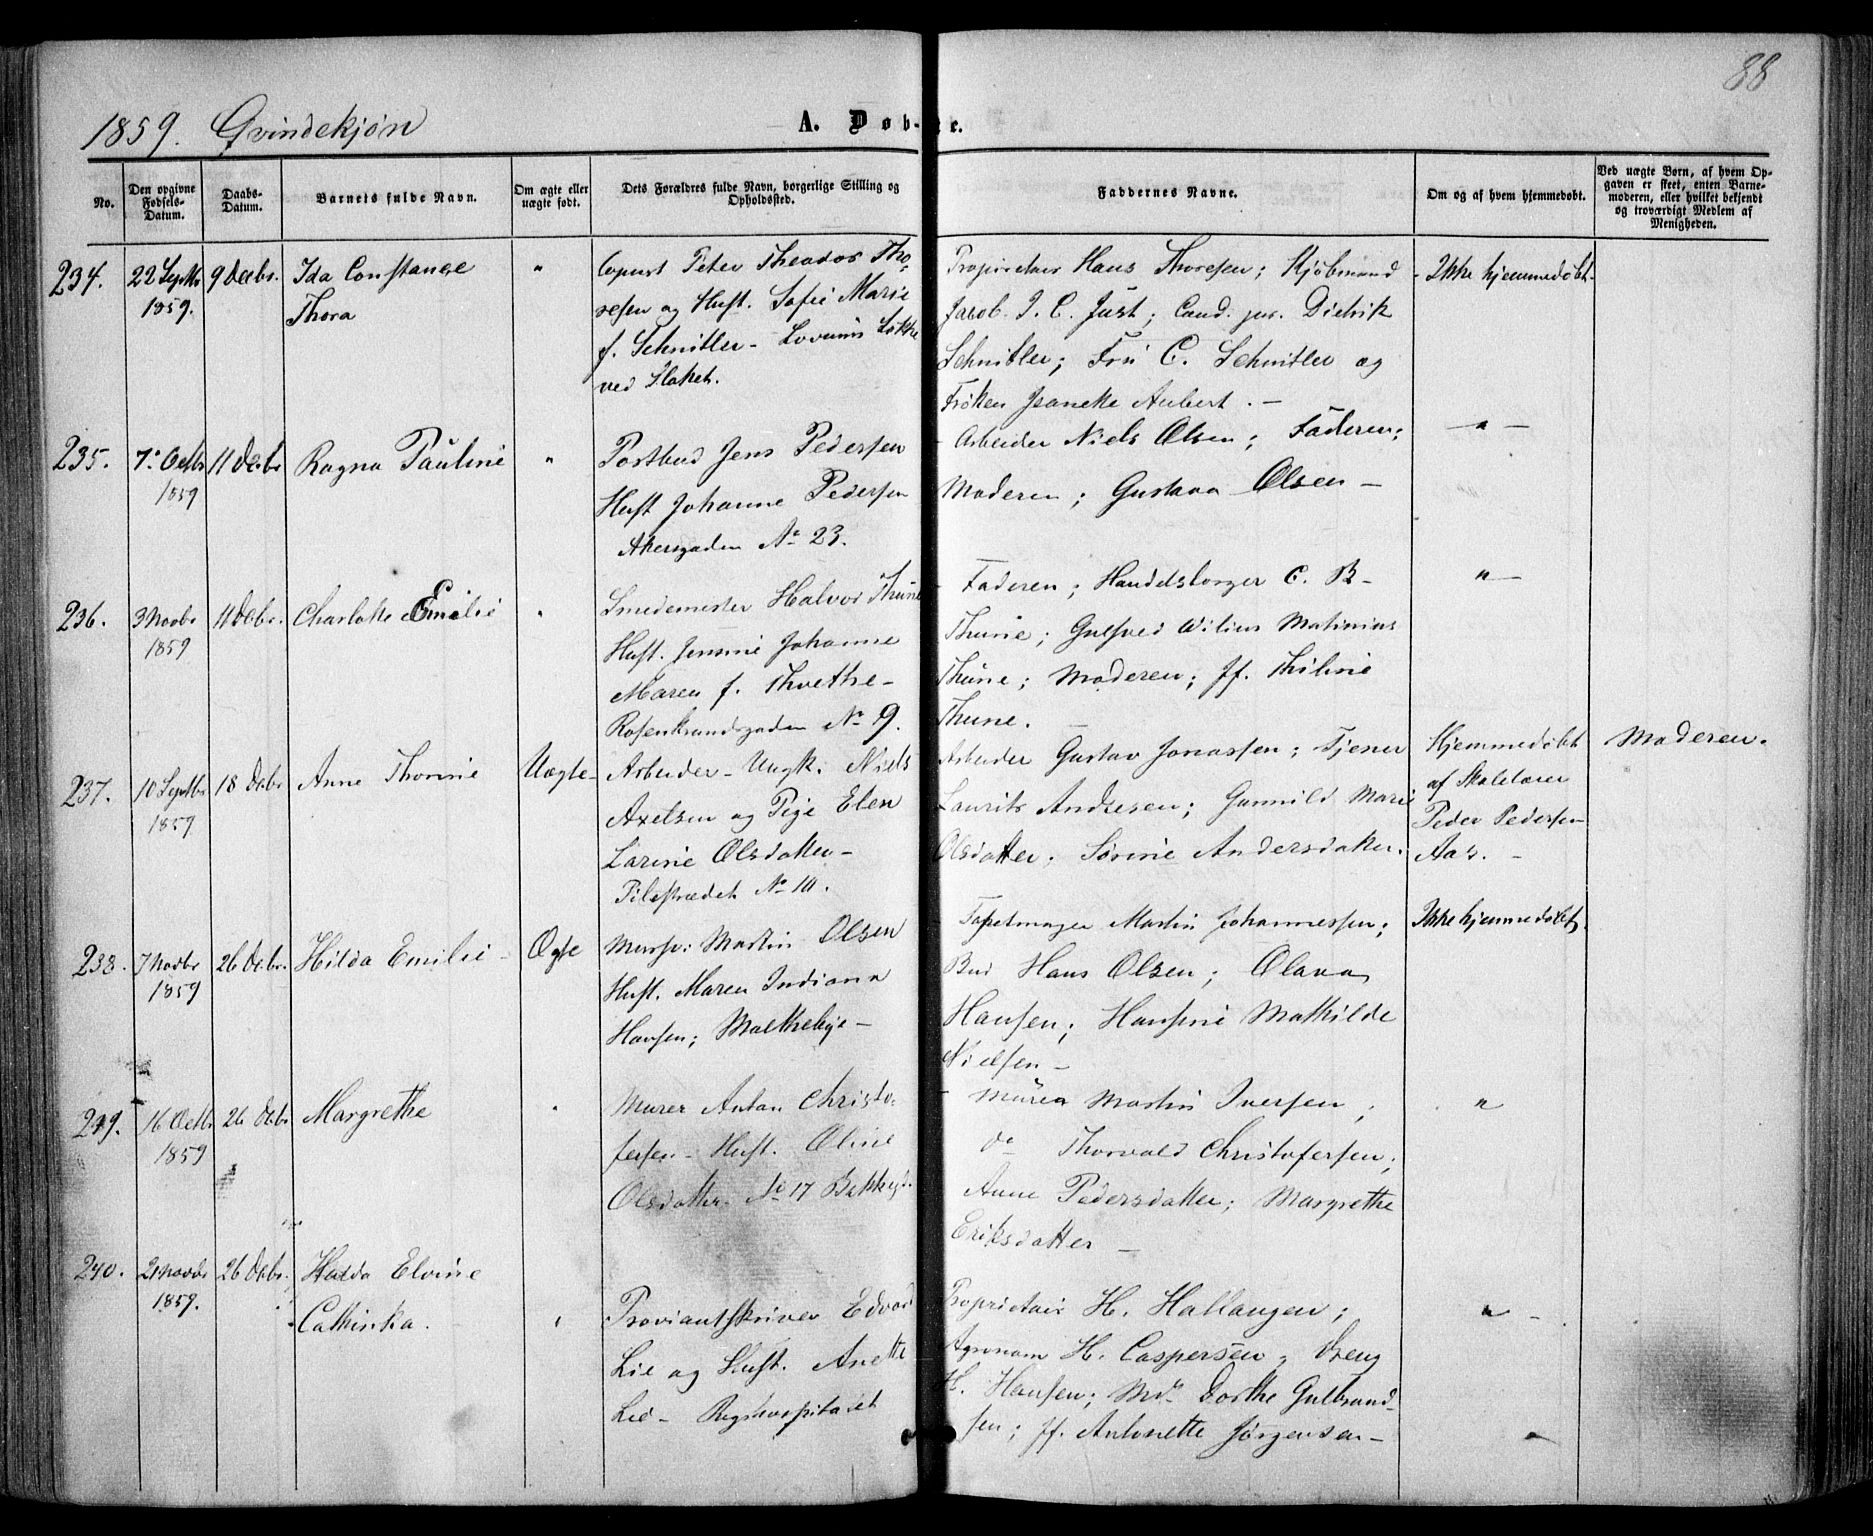 88
1859. Qvindekjøn
A. Døbte.
No.
Den opgivne Fødsels-Datum.
Daabs-Datum.
Barnets fulde Navn.
Om ægte eller uægte født.
Dets Forældres fulde Navn, borgerlige Stilling og Opholdssted.
Faddernes Navne.
Om og af hvem hjemmedøbt.
Ved uægte Børn, af hvem Opgaven er skeet, enten Barnemoderen, eller hvilket bekjendt og troværdigt Medlem af Menigheden.
234.
22 Septbr 1859.
9 Decbr.
Ida Constanse
Thora
"
Copist Peter Theodor Tho-
resen og Hust. Sofie Marie
f. Schnitler - Løkke
ved Slottet.
Proprietair Hans Thoresen; Kjøbmand
Jacob I. C. Just; Cand. jur. Didrik
Schnitler; Fru C. Schnitler og
Frøken Jeaneke Aubert. -
Ikke hjemmedøbt.
235.
7. Octbr 1859
11 Decbr
Ragna Pauline
"
Postbud Jens Pedersen
Hust Johanne Pedersen
Akersgaden No 23.
Arbeider Niels Olsen; Faderen;
Moderen; Gustava Olsen -
- " -
236.
3 Novbr 1859
11 Debr.
Charlotte Emilie
"
Smedemester Halvor Thune
Hust. Jensine Johanne
Maren f. Thvethe -
Rosenkrandsgaden No 9.
Faderen; Handelsborger C. B.
Thune; Gulfred Wilius Mathinius
Thune; Moderen; Jf. Thiline
Thune.
" -
237.
10 Septbr 1859
18 Debr
Anne Thorine
Uægte -
Arbeider - Ungk. Niels
Axelsen og Pige Elen
Larine Olsdatter -
Pilestrædet No 10.
Arbeider Gustav Jonassen; Tjener
Laurits Andresen; Gunnild Marie
Olsdatter. Sørine Andersdatter.
Hjemmedøbt
af Skolelærer
Peder Pedersen
Aas. -
Moderen.
238.
7 Novbr 1859
26 Debr.
Hilda Emilie -
Ægte
Mursv: Martin Olsen
Hust. Maren Indiana
Hansen; -
Tapetmager Martin Johannessen;
Bud Hans Olsen; Olava
Hansen; Hansine Mathilde
Nielsen -
Ikke hjemmedøbt.
239.
16 Octbr 1859
26 Debr
Margrethe
"
Murer Anton Christo-
fersen - Hust. Oline
Olsdatter. No 17 Bakkegt.
Murer Martin Iversen;
do Thorvald Christofersen;
Anne Pedersdatter; Margrethe
Eriksdatter -
"
240.
2 Novbr 1859.
26 Debr.
Hulda Elvine
Cathinka.
"
Proviantskriver Edvard
Lie og Hust. Anette
Lie - Rigshospitalet
Proprietair H. Hallangen;
Agronom H. Caspersen; Dreng
H. Hansen; Md. Dorthe Gulbrand-
sen; Jf. Antonette Jørgensen -
" -